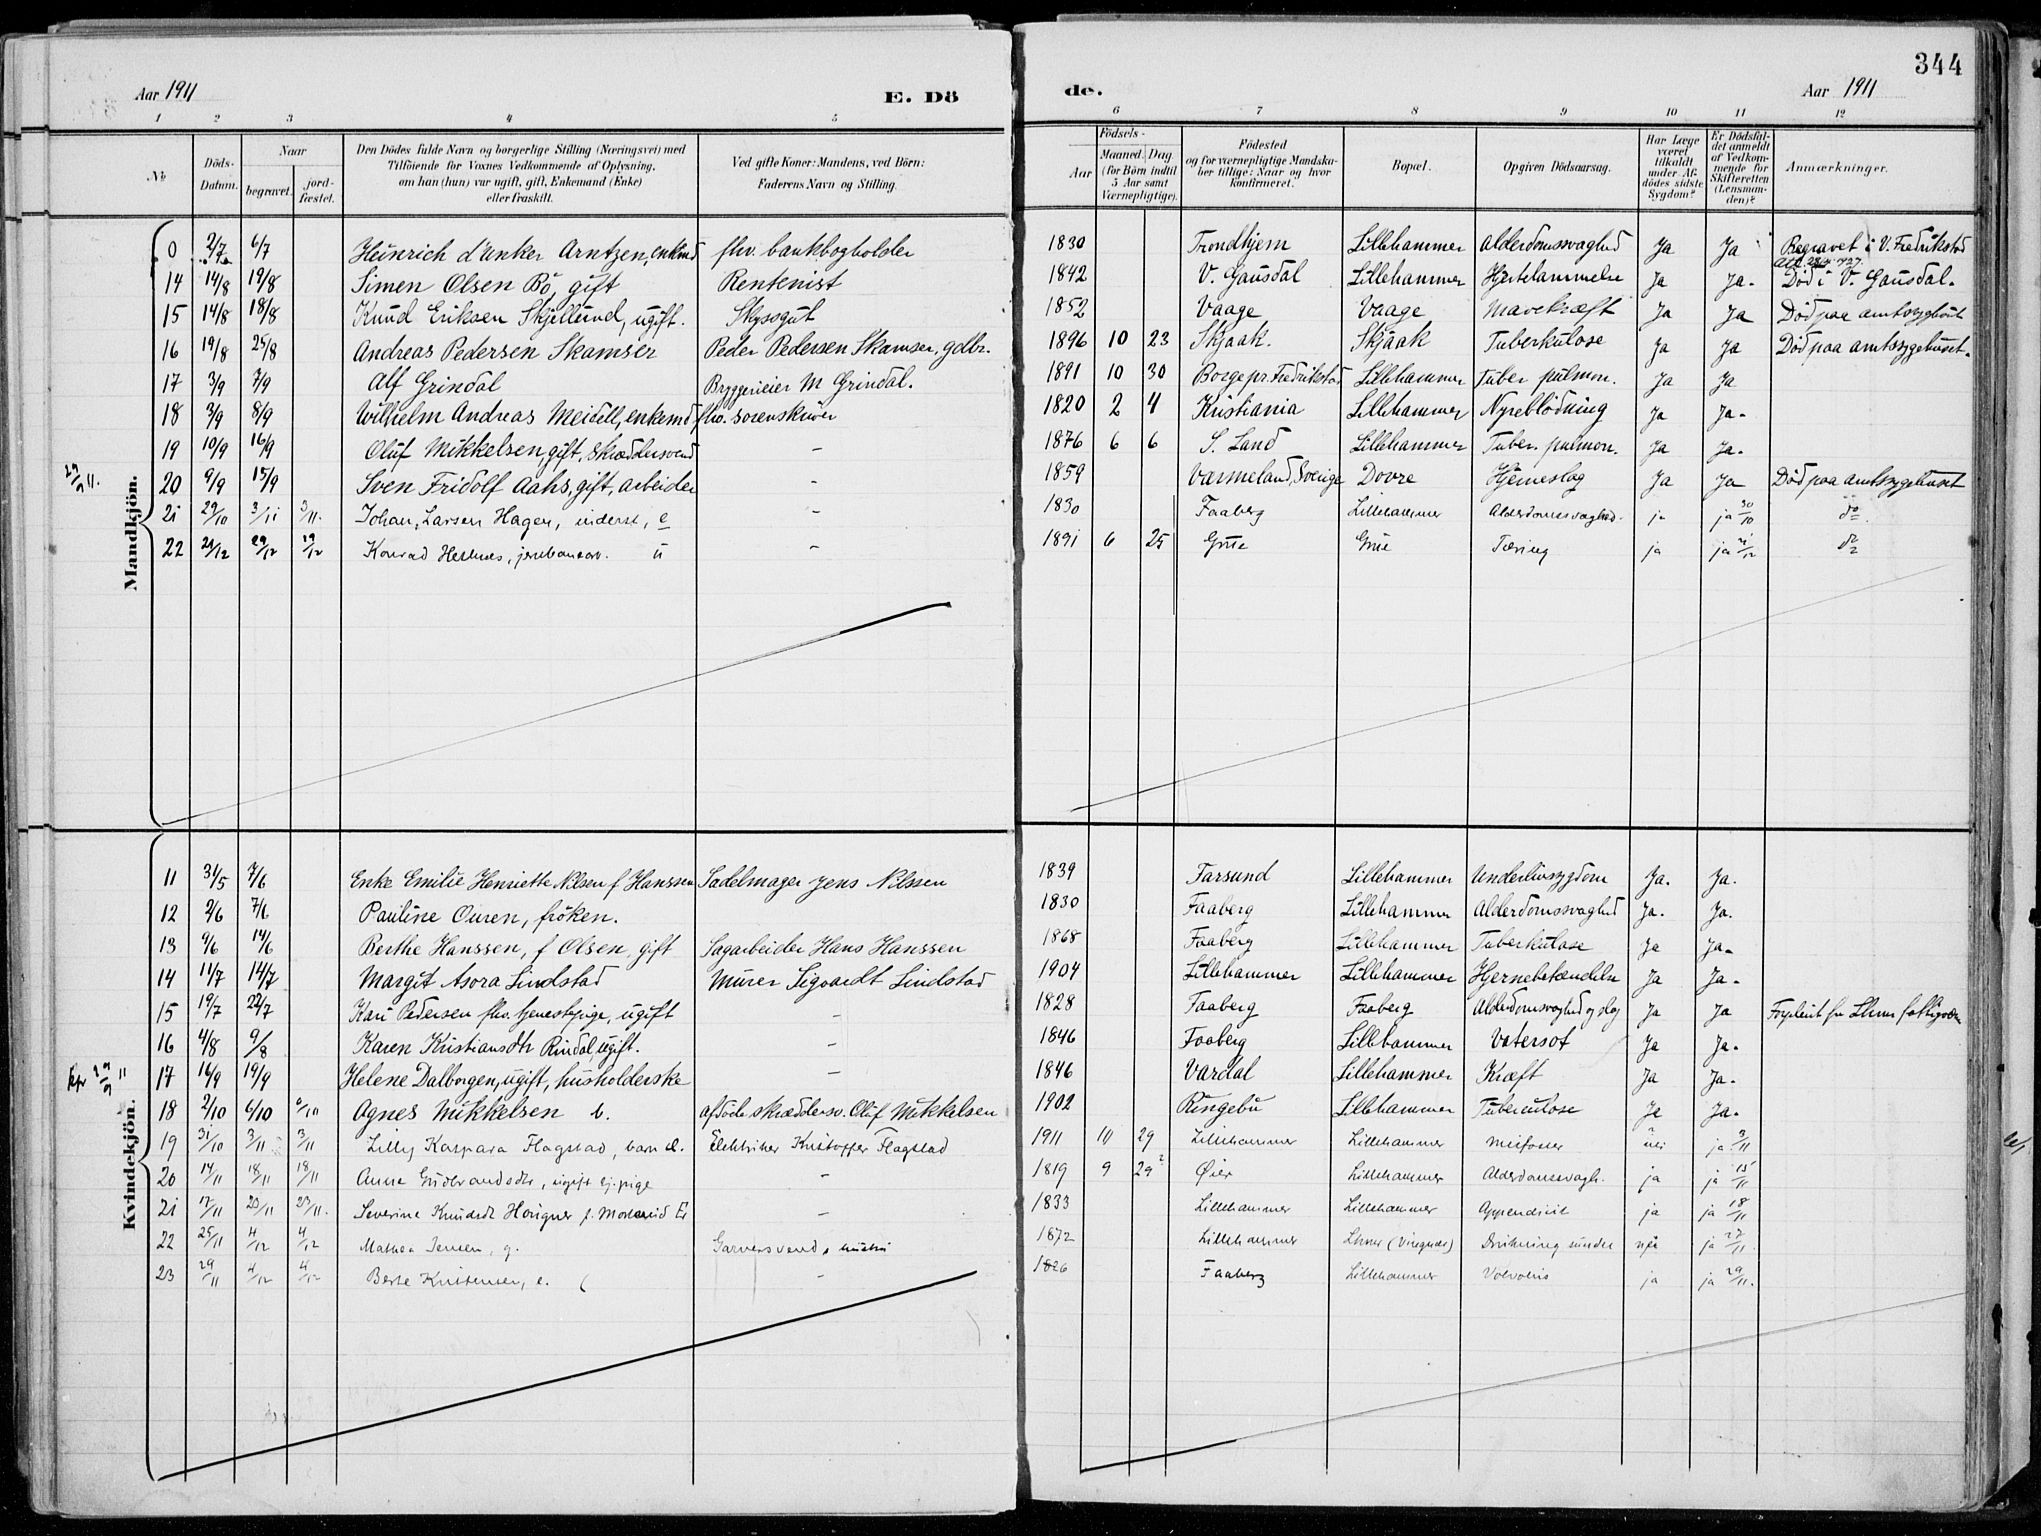 344
Aar 1911
E. Dö
de.
Aar 1911
1 2 3 4 5 6 7 8 9 10 11 12
No.
Döds-Datum.
Naar
begravet.
jordfæstet.
Den Dödes fulde Navn og borgerlige Stilling (Næringsvei) med
Tilföiende for Voxnes Vedkommende af Oplysning,
om han (hun) var ugift, gift, Enkemand (Enke)
eller fraskilt.
Ved gifte Koner: Mandens, ved Börn:
Faderens Navn og Stilling.
Födsels-
Aar
Maaned. Dag
(for Börn indtil
5 Aar samt
Værnepligtige).
Födested
og for værnepligtige Mandskaber tillige: Naar og hvor
konfirmeret.
Bopæl.
Opgiven Dödsaarsag.
Har Læge
været
tilkaldt
under Afdödes sidste
Sygdom?
Er Dödsfaldet anmeldt
af Vedkommende for
Skifteretten
(Lensmanden)?
Anmærkninger.
Mandkjön.
0 2/7 6/7 Heinrich d'Unker Arntzen, enkmd fhv. bankbogholder 1830 Trondhjem Lillehammer Alderdomssvaghed Ja Ja Begravet i V. Fredrikstad
14 14/8 19/8 Simen Olsen Bö, gift Rentenist 1842 V. Gausdal Lillehammer Hjertelammelse Ja Ja. Död i V. Gausdal.
15 14/8 18/8 Knud Eriksen Skjellund, ugift. Skysgut 1852 Vaage Vaage Mavekræft Ja Ja Död paa amtssygehuset
16 19/8 25/8 Andreas Pedersen Skamser Peder Pedersen Skamser, gdbr. 1896 10 23 Skjaak. Skjaak Tuberkulose Ja Ja Död paa amtssygehuset.
17 3/9 7/9 Alf Grindal Bryggerieier M Grindal. 1891 10 30 Borge pr. Fredrikstad Lillehammer Tuber pulmon. Ja Ja
18 3/9 8/9 Wilhelm Andreas Meidell, enkemd fhv. sorenskriver 1820 2 4 Kristiania Lillehammer Nyreblödning Ja Ja.
19 10/9 16/9 Oluf Mikkelsen, gift, skræddersvend - 1876 6 6 S. Land Lillehammer Tuber. pulmon. Ja Ja.
20 9/9 15/9 Sven Fridolf Aahs, gift, arbeider - 1859 Varmeland, Sverige Dovre Hjerneslag Ja Ja Död paa amtssygehuset
21 29/10 3/11 3/11. Johan Larsen Hagen, inderst, e - 1830 Faaberg Lillehammer Alderdomssvaghed. ja ja 30/10 do
22 21/12 29/12 29/12 Konrad, jernbanearb. u - 1891 6 25 Grue Grue Tæring ja ja 21/12 do
Kvindekjön.
11 31/5 7/6 Enke Emilie Henriette Nilsen f Hanssen Sadelmager Jens Nilssen 1839 Farsund Lillehammer Underlivssygdom Ja. Ja.
12 2/6 7/6 Pauline Ouren, fröken. 1830 Faaberg Lillehammer Alderdomssvaghed Ja. Ja.
13 9/6 14/6 Berthe Hanssen, f Olsen, gift Sagarbeider Hans Hanssen 1868 Faaberg Lillehammer Tuberkulose Ja Ja.
14 11/7 14/7 Margit Asora Lindstad Murer Sigvardt Lindstad 1904 Lillehammer Lillehammer Hjernebetændelse Ja Ja.
15 19/7 22/7 Kari Pedersen fhv. tjenestepige, ugift - 1828 Faaberg Faaberg Alderdomssvaghed og slag Ja Ja Forpleiet fr Lhmr fattigvæsn
16 4/8 9/8 Karen Kristiansdtr Rindal, ugift. - 1846 Faaberg Lillehammer Vatersot Ja Ja.
17 16/9 19/9 Helene Dalborgen, ugift, husholderske - 1846 Vardal Lillehammer Kræft Ja Ja.
18 2/10 6/10 6/10 Agnes Mikkelsen b. afdöde skræddersv. Oluf Mikkelsen 1902 Ringebu Lillehammer Tuberculose Ja Ja.
19 31/10 3/11 3/11 Lilly Kaspara Flagstad, barn Elektriker Kristoffer Flagstad 1911 10 29 Lillehammer Lillehammer nei ja 2/11
20 14/11 18/11 18/11 Anne Gudbrandsdtr, ugift tj.pige - 1819 9 29? Øier Lillehammer Alderdomssvagh. ja ja 15/11
21 17/11 23/11 23/11. Severine Knudsdt Hougner - 1833 Lillehammer Lillehammer Appendicit ja ja 18/11
22 25/11 4/12 4/12 Mathea Jensen, g. Garversvends hustru 1872 Lillehammer Lhmr ja 27/11.
23 29/11 4/12 4/12 Berte Kristensen, e. - 1826 Faaberg Lillehammer Volvolus ja ja 29/11.